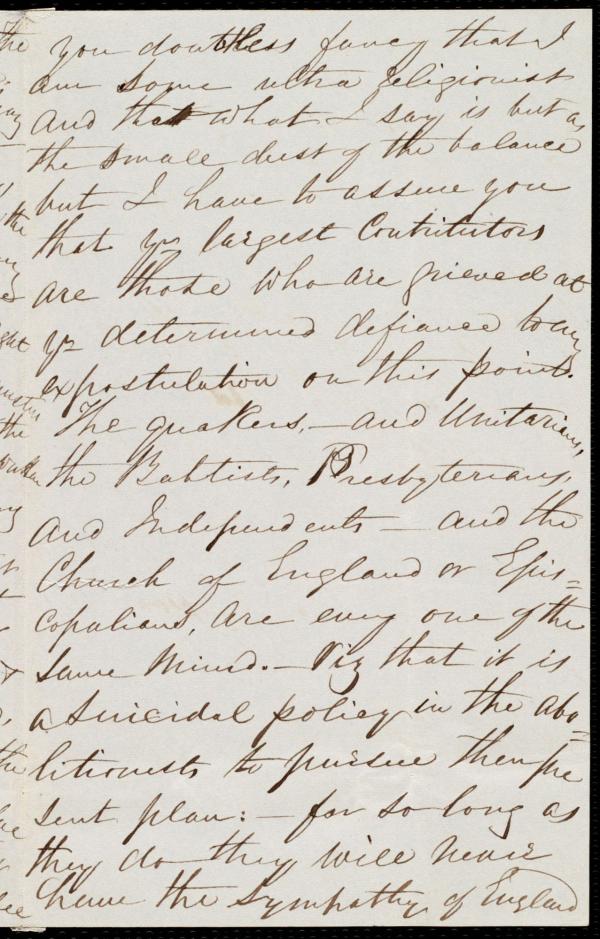 you doubtless fancy that I
am some ultra religionist
and that what I say is but as
the small dust of the balance
but I have to assure you
that yr largest Contributors
are those who are grieved at
yr determined defiance to any
expostulation on this point.
The quakers, - and Unitarians,
the Babtists, Presbyterians,
and Independents - and the
Church of England or Epis=
copalians, are every one of the
same Mind. - Viz that it is
a Suicidal policy in the abo=
litionists to pursue their pre
sent plan: - for so long as
they do they will never
have the Sympathy of England